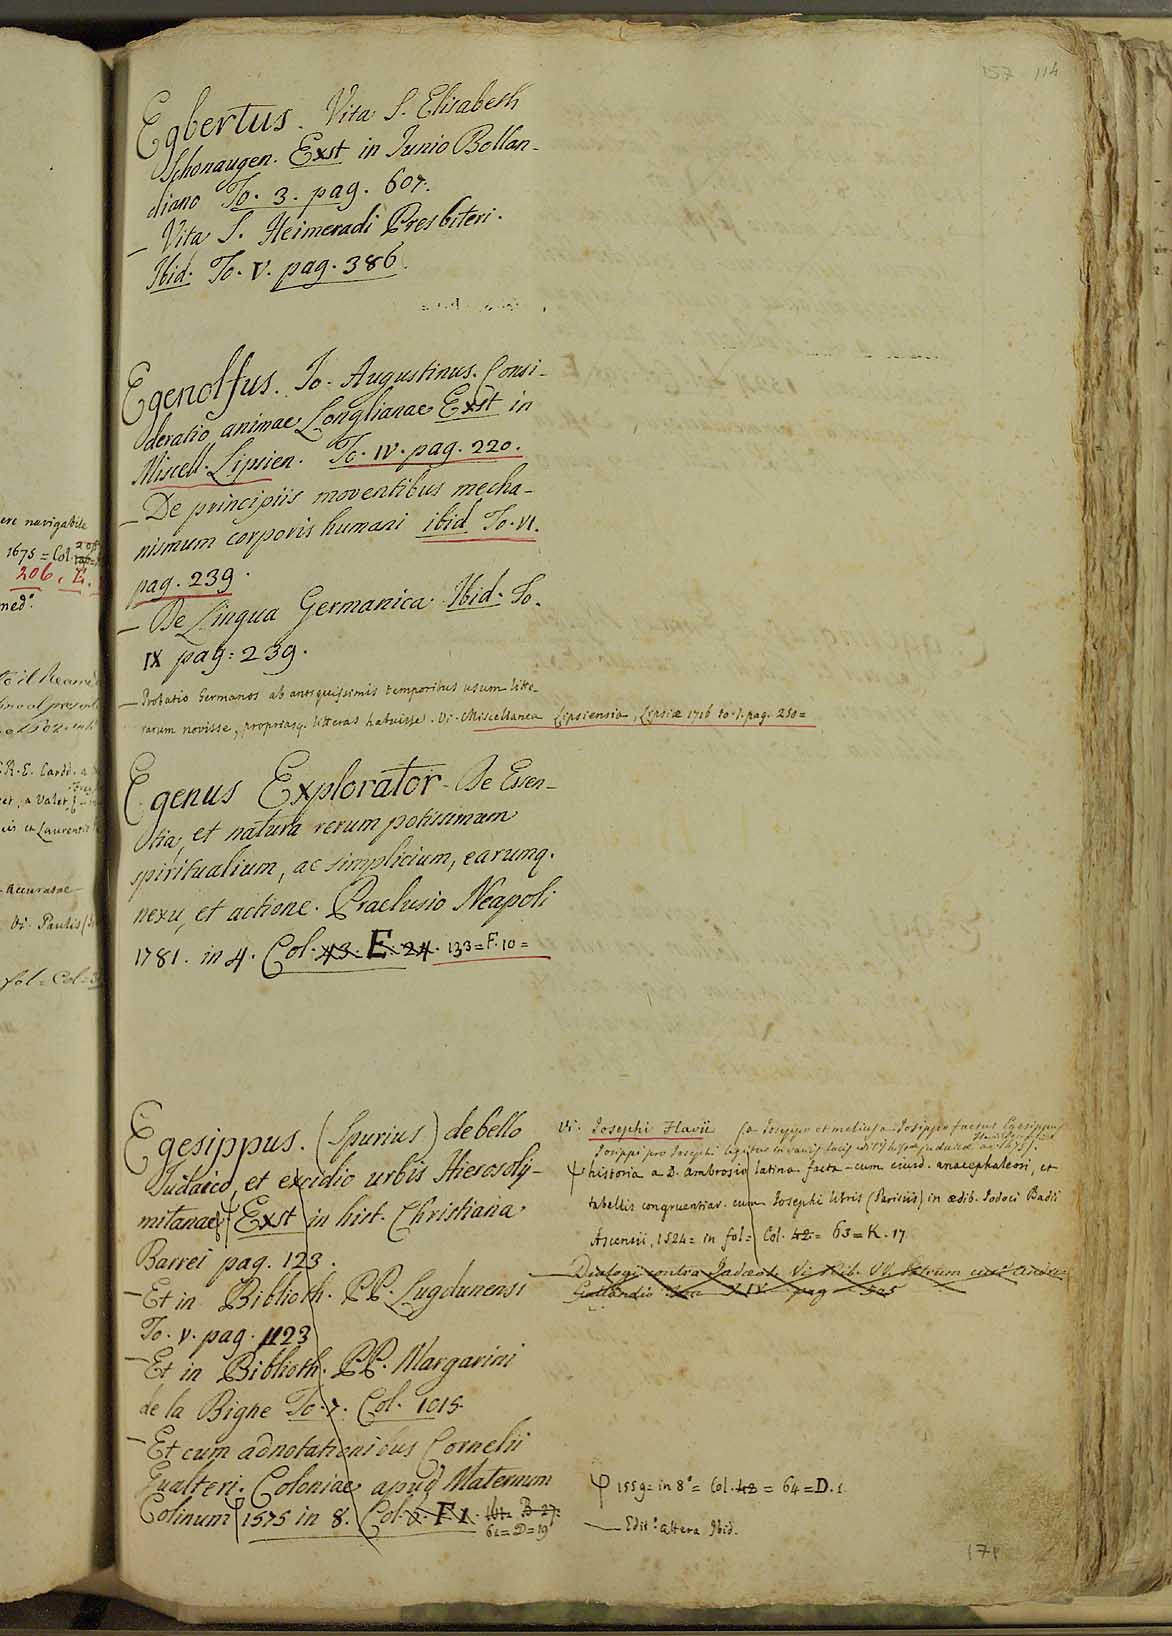 157 114
Egbertus. Vita S. Elisabeth
Schonaugen. Exst in Junio Bollan-
diano To. 3. pag. 607.
- Vita S. Heimeradi Presbiteri.
Ibid. To. V. pag. 386.
Egenolfus. Jo. Augustinus. Consi-
deratio animae Longlianae Exst in
Miscell. Lipsien. To. IV. pag. 220.
- De principiis moventibus mecha-
nismum corporis humani ibid To. VI.
pag. 239.
- De Lingua Germanica. Ibid. To.
IX pag: 239.
- Probatio Germanos ab antiquissimis temporibus usum litte-
rarum novisse, propriasq. litteras habuisse. Vi. Miscellanea Lipsiensia, Lipsiæ 1716 to. I. pag. 250=
Egenus Explorator. De Essen-
tia, et natura rerum potissimum
spiritualium, ac simplicium, earumq.
nexu, et actione. Praelusio Neapoli
1781. in 4. Col. 43. E. 24. 133=F.10=
Egesippus. (Spurius) de bello
Judaico, et excidio urbis Hierosoly-
mitanae. Exst in hist. Christiana
Barrei pag. 123.
- Et in Biblioth. PP. Lugdunensi
To. V. pag. 1123
- Et in Biblioth. PP. Margarini
de la Bigne To. 7. Col. 1015.
- Et cum adnotationibus Cornelii
Gualteri. Coloniae apud Maternum
Colinum 1575 in 8. Col. 6. F. 1. 161. B. 27.
64=D=19
Vi. Josephi Flavii
historia a D. Ambrosio latina facta - cum eiusd. anacephaleosi, et
tabellis congruentiar. cum Josephi libris (Parisiis) in ædib. Jodoci Badii
Ascensii, 1524= in fol= Col. 42= 63=K.17
- Dialogi contra Judæos Vi. Bib. VV. Patrum
Gallandio pag. 505
φ 1559= in 8°= Col. 42= 64=D.1.
- Edit.° altera Ibid.
171
ere navigabile
1675 = Col.
206. E.